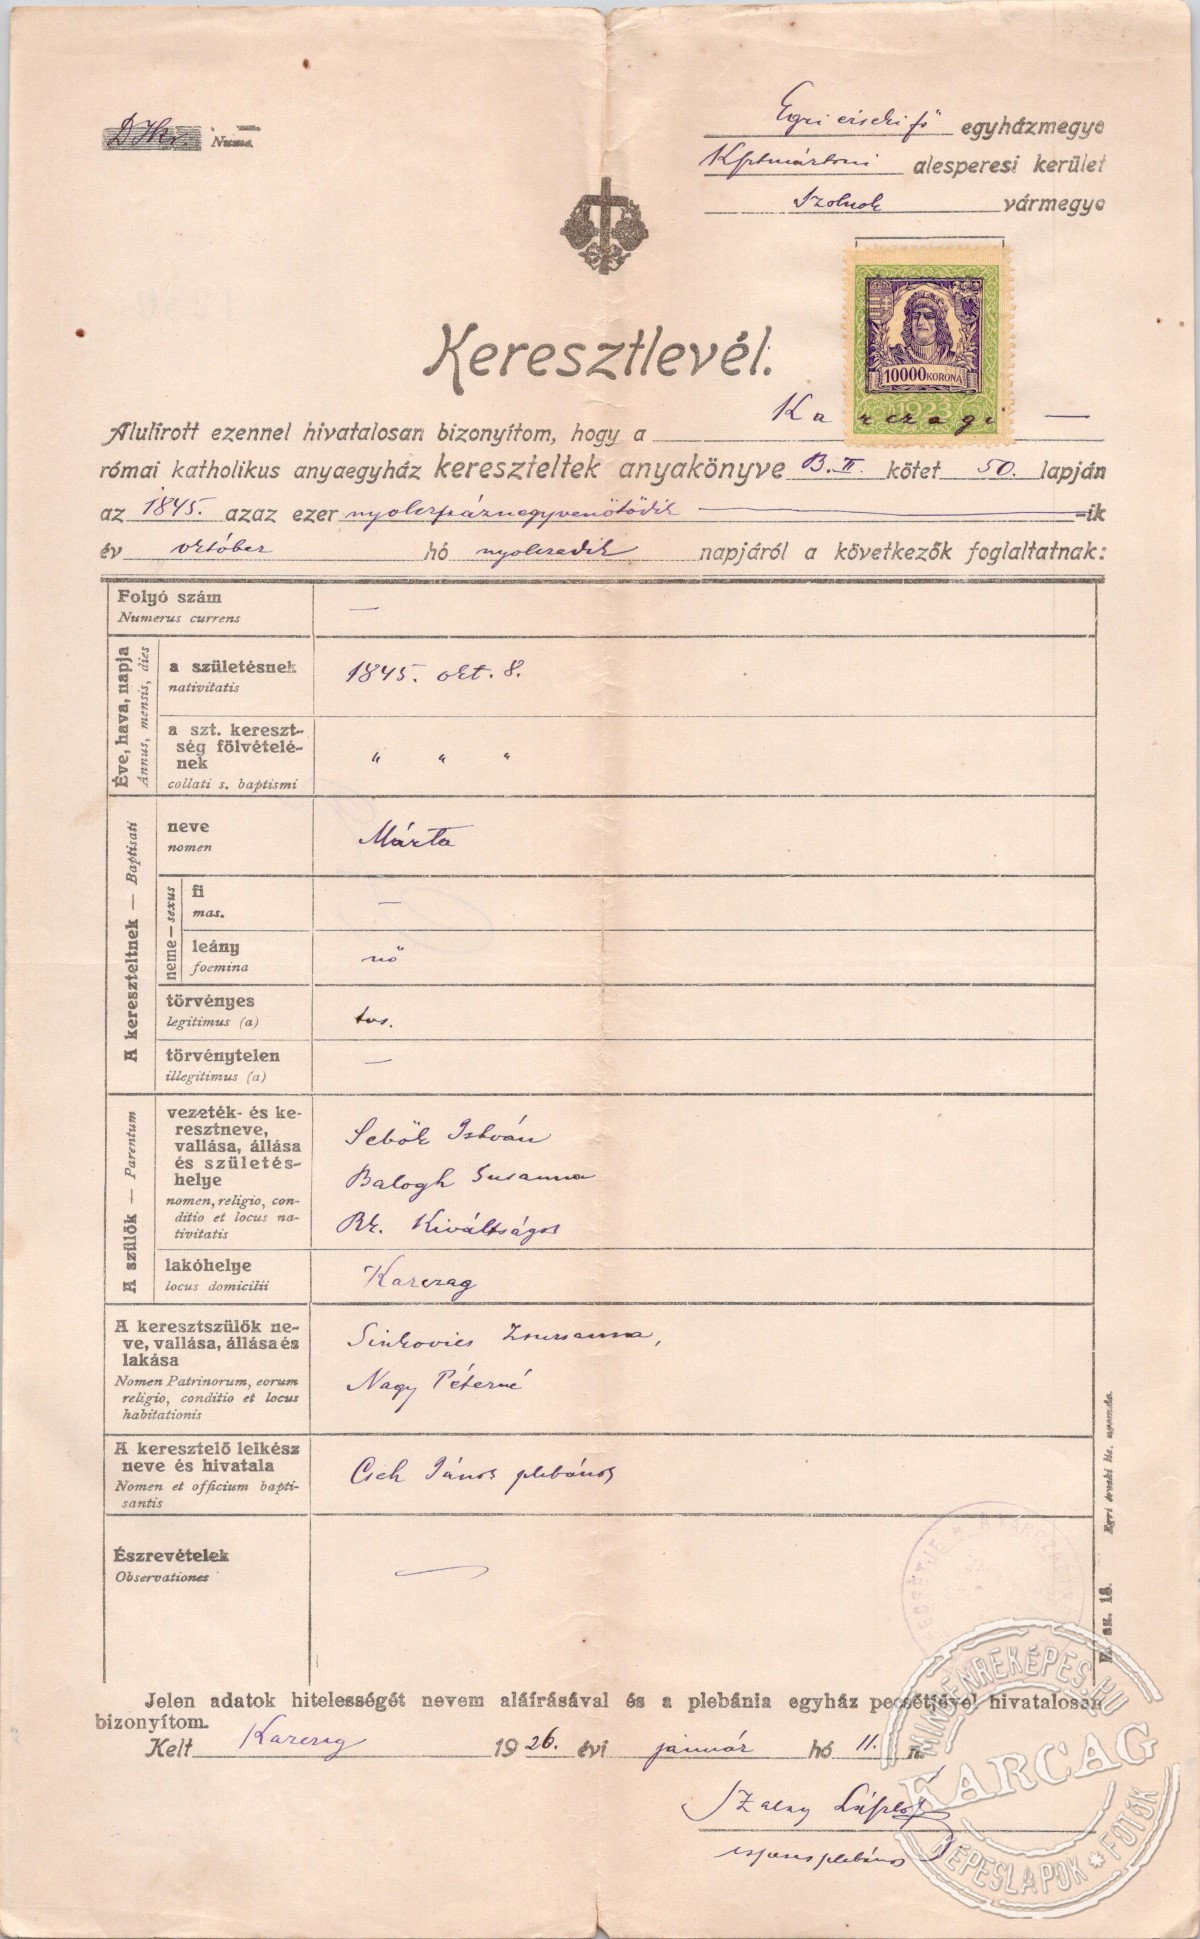 Numo.
Egri egyházmegye
Kptmártoni alesperesi kerület
Szolnok vármegye
10000 KORONA
1923
Keresztlevél.
Alulirott ezennel hivatalosan bizonyítom, hogy a Karczagi —
római katholikus anyaegyház kereszteltek anyakönyve B. II. kötet 50. lapján
az 1845. azaz ezer nyolcszáznegyvenötödik =ik
év október hó nyolczadik napjáról a következők foglaltatnak:
Folyó szám —
Numerus currens
Éve, hava, napja
Annus, mensis, dies
a születésnek
nativitatis
1845. okt. 8.
a szt. kereszt-
ség fölvételé-
nek
collati s. baptismi
" " "
A kereszteltnek — Baptisati
neve
nomen
Márta
neme — sexus
fi
mas.
—
leány
foemina
nő
törvényes
legitimus (a)
tvs.
törvénytelen
illegitimus (a)
—
A szülők — Parentum
vezeték- és ke-
resztneve,
vallása, állása
és születés-
helye
nomen, religio, con-
ditio et locus na-
tivitatis
Sebők István
Balogh Susanna
Rk. Kiváltságos
lakóhelye
locus domicilii
Karczag
A keresztszülők ne-
ve, vallása, állása és
lakása
Nomen Patrinorum, eorum
religio, conditio et locus
habitationis
Sinkovics Zsuzsanna,
Nagy Péterné
A keresztelő lelkész
neve és hivatala
Nomen et officium bapti-
santis
Cseh János plebános
Észrevételek
Observationes
Egri érseki lic. nyomda.
sz. 18.
Jelen adatok hitelességét nevem aláírásával és a plebánia egyház pecsétjével hivatalosan
bizonyítom.
Kelt Karczag 1926. évi január hó 11. n.
Szalay László
esperesplebános
MINDENREKÉPES.HU
KARCAG
KÉPESLAPOK * FOTÓK